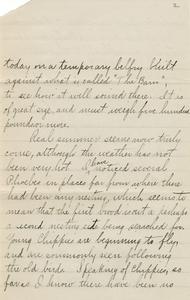 2
today on a temporary belfry built
against what is called "The Barn",
to see how it will sound there. It is
of great size and must weigh five hundred
pounds or more.
Real summer seems now truly
come, although the weather has not
been very hot. I have noticed several
Phoebes in places far from where there
had been any nesting, which seems to
mean that the first brood is out & perhaps
a second nesting site being searched for.
Young Chippies are beginning to fly,
and are commonly seen following
the old birds. Speaking of Chippies, so
far as I know there have been no